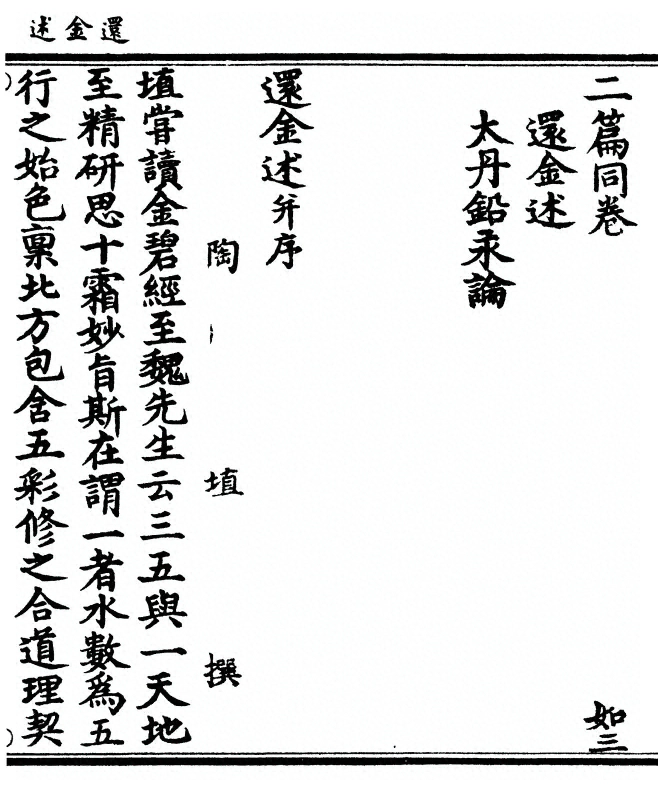 還金述
二篇同卷 如三
還金述
太丹鉛汞論
還金述并序
陶 埴 撰
埴嘗讀金碧經至魏先生云三五與一天地
至精研思十霜妙旨斯在謂一者水數爲五
行之始色稟北方包含五彩修之合道理契